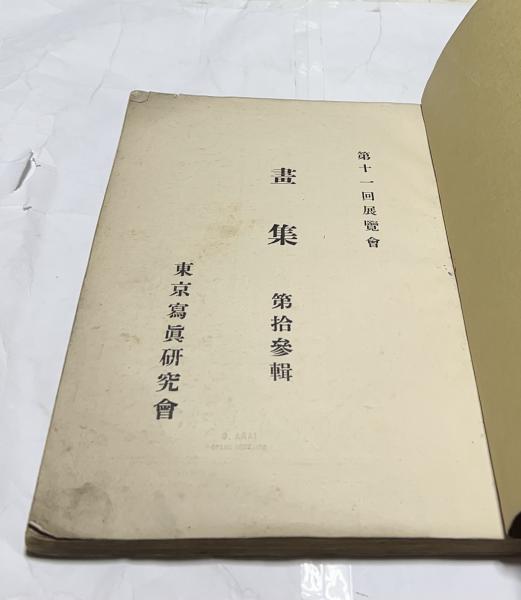 第十一回展覽會
畫集 第拾參輯
東京寫眞研究會